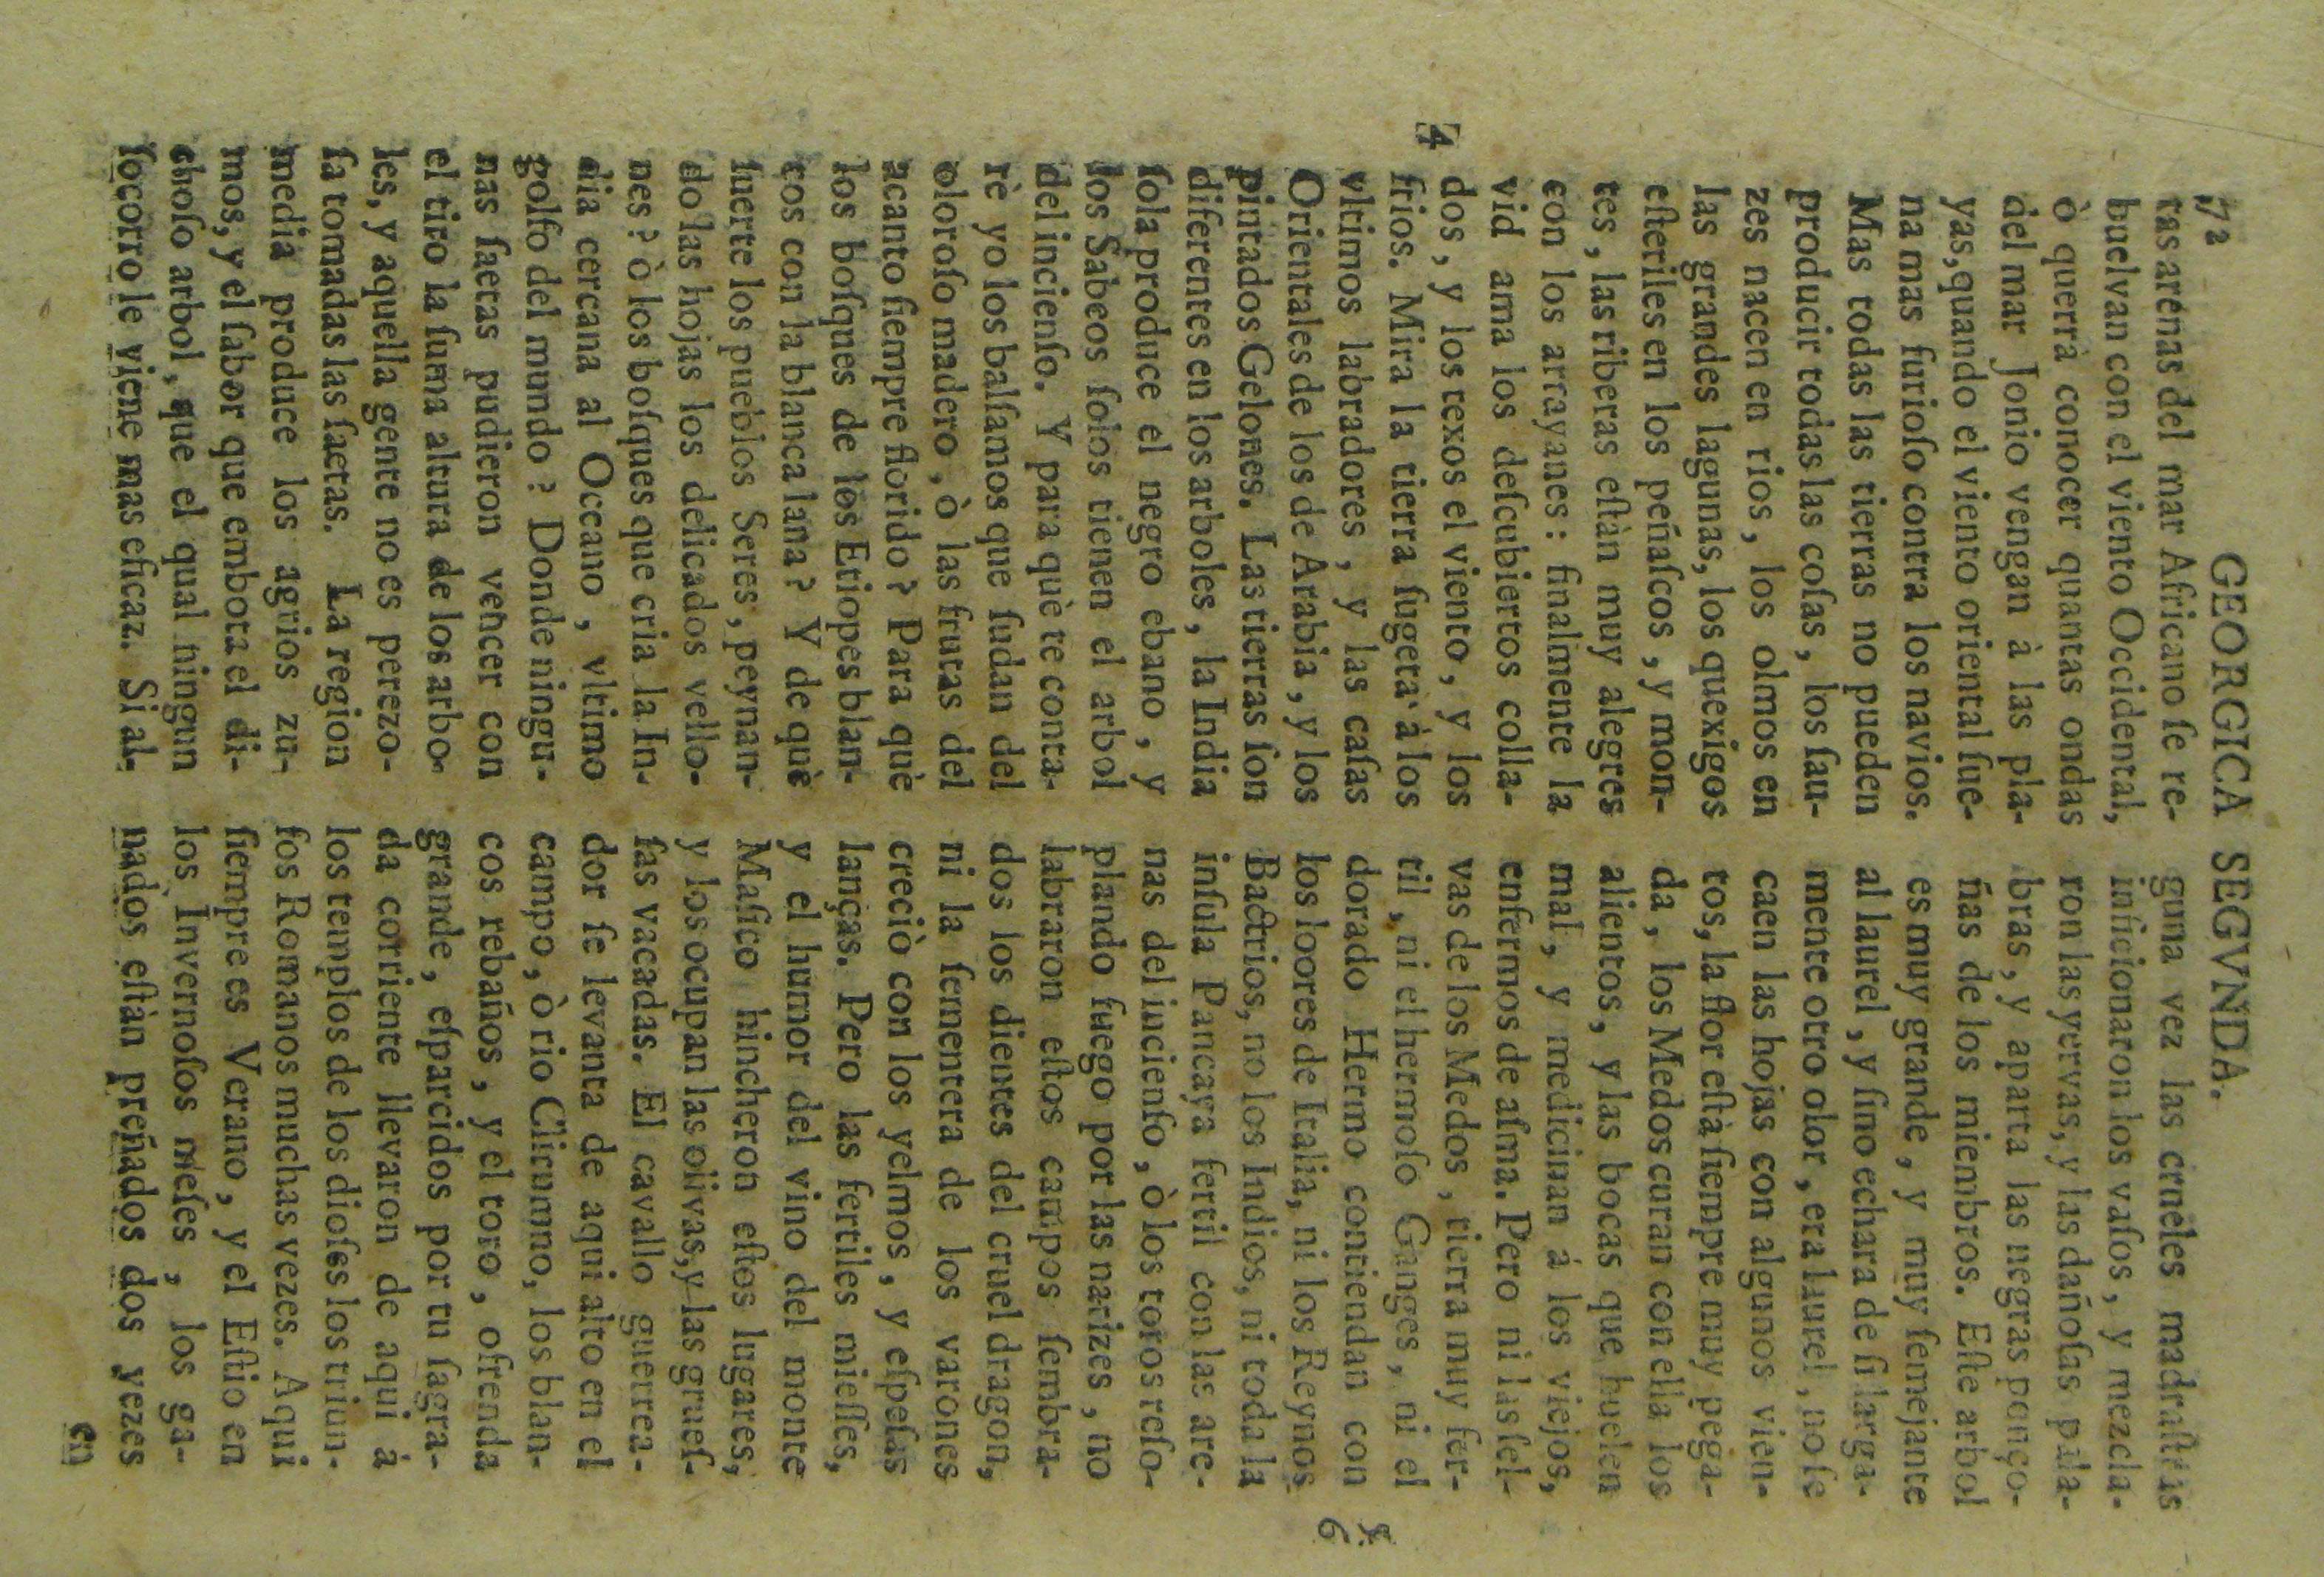 72 GEORGICA SEGVNDA.
tas arenas del mar Africano ſe re-
buelvan con el viento Occidental,
ò querrà conocer quantas ondas
del mar Jonio vengan à las pla-
yas, quando el viento oriental ſue-
na mas furioſo contra los navios.
Mas todas las tierras no pueden
producir todas las coſas, los ſau-
zes nacen en rios, los olmos en
las grandes lagunas, los quexigos
eſteriles en los peñaſcos, y mon-
tes, las riberas eſtàn muy alegres
con los arrayanes: finalmente la
vid ama los deſcubiertos colla-
dos, y los texos el viento, y los
4
frios. Mira la tierra ſugeta à los
vltimos labradores, y las caſas
Orientales de los de Arabia, y los
pintados Gelones. Las tierras ſon
diferentes en los arboles, la India
ſola produce el negro ebano, y
los Sabeos ſolos tienen el arbol
del incienſo. Y para què te conta-
rè yo los balſamos que ſudan del
oloroſo madero, ò las frutas del
acanto ſiempre florido? Para què
los boſques de los Etiopes blan-
cos con la blanca lana? Y de què
ſuerte los pueblos Seres, peynan-
do las hojas los delicados vello-
nes? ò los boſques que cria la In-
dia cercana al Occeano, vltimo
golfo del mundo? Donde ningu-
nas ſaetas pudieron vencer con
el tiro la ſuma altura de los arbo-
les, y aquella gente no es perezo-
ſa tomadas las ſaetas. La region
media produce los agrios zu-
mos, y el ſabor que embota el di-
choſo arbol, que el qual ningun
ſocorro le viene mas eficaz. Si al-
guna vez las crueles madraſtras
inficionaron los vaſos, y mezcla-
ron las yervas, y las dañoſas pala-
bras, y aparta las negras ponço-
ñas de los miembros. Eſte arbol
es muy grande, y muy ſemejante
al laurel, y ſino echara de ſi larga-
mente otro olor, era laurel, no ſe
caen las hojas con algunos vien-
tos, la flor eſtà ſiempre muy pega-
da, los Medos curan con ella los
alientos, y las bocas que huelen
mal, y medicinan á los viejos,
enfermos de aſma. Pero ni las ſel-
vas de los Medos, tierra muy fer-
til, ni el hermoſo Ganges, ni el
5
6
dorado Hermo contiendan con
los loores de Italia, ni los Reynos
Bactrios, no los Indios, ni toda la
inſula Pancaya fertil con las are-
nas del incienſo, ò los toros reſo-
plando fuego por las narizes, no
labraron eſtos campos ſembra-
dos los dientes del cruel dragon,
ni la ſementera de los varones
creciò con los yelmos, y eſpeſas
lanças. Pero las fertiles mieſſes,
y el humor del vino del monte
Maſico hincheron eſtos lugares,
y los ocupan las olivas, y las grueſ-
ſas vacadas. El cavallo guerrea-
dor ſe levanta de aqui alto en el
campo, ò rio Clitumno, los blan-
cos rebaños, y el toro, ofrenda
grande, eſparcidos por tu ſagra-
da corriente llevaron de aqui á
los templos de los dioſes los triun-
fos Romanos muchas vezes. Aqui
ſiempre es Verano, y el Eſtio en
los Invernoſos meſes, los ga-
nados eſtàn preñados dos vezes
en